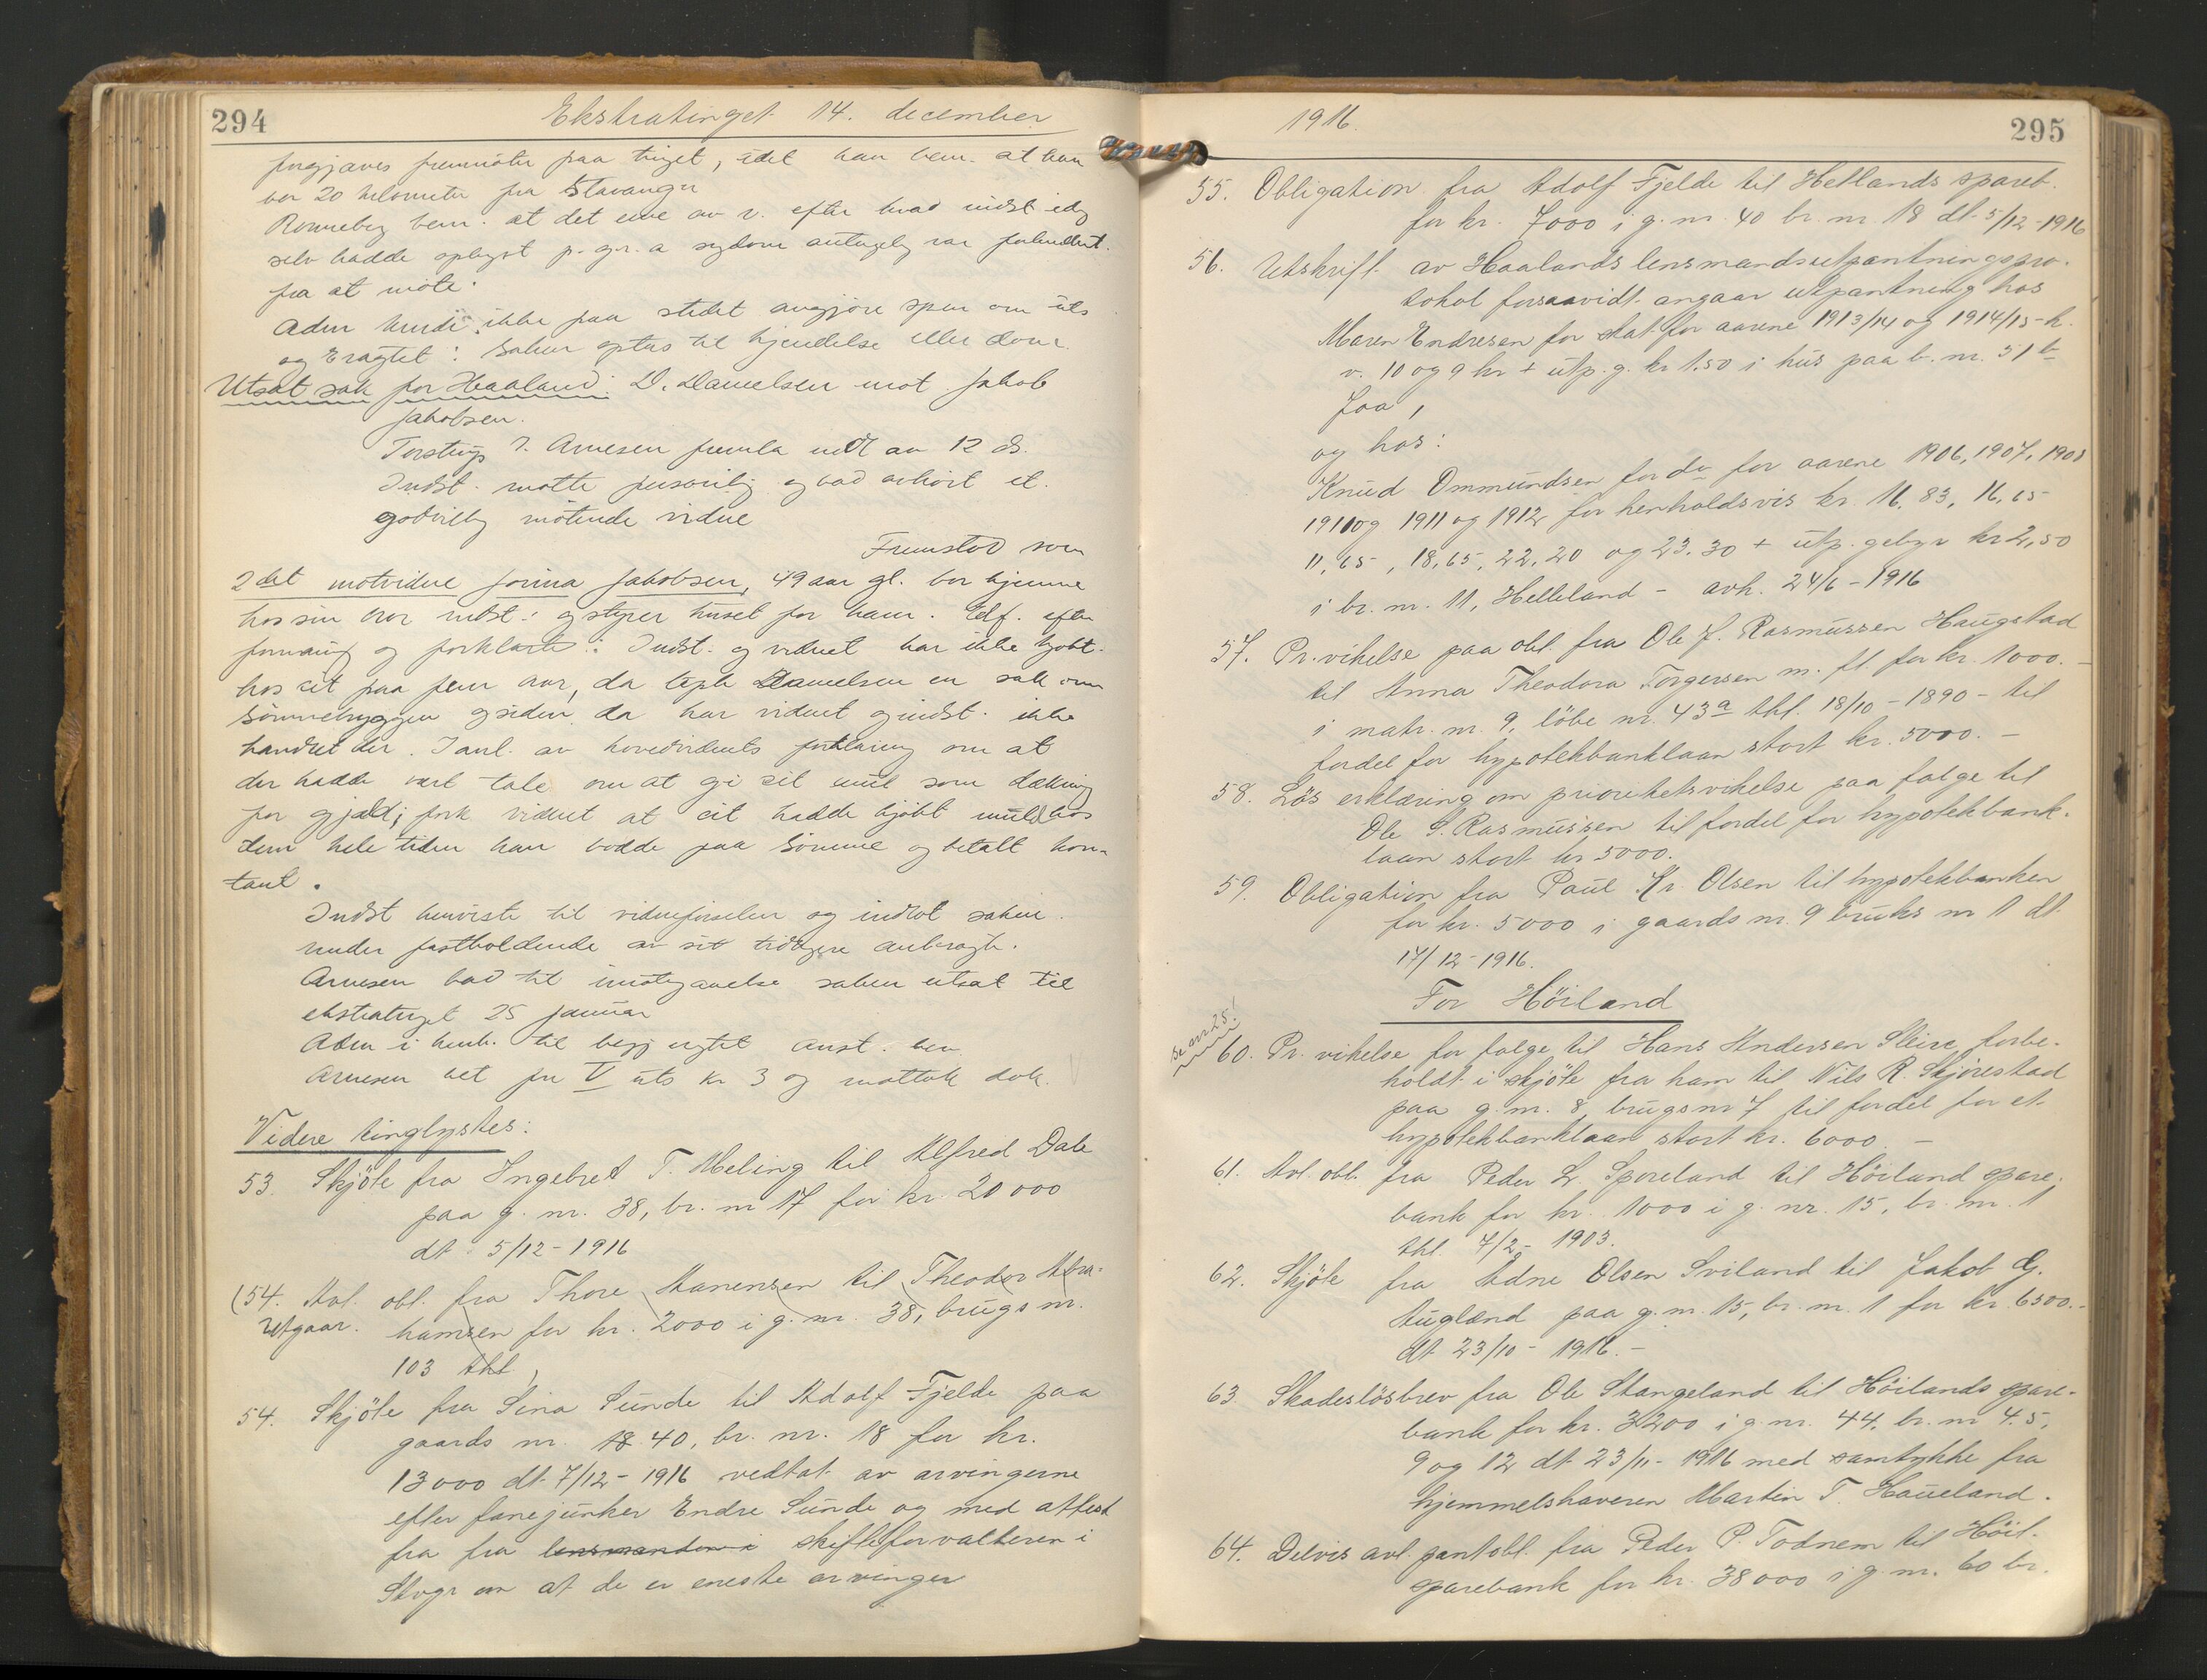 294
Ekstratinget 14. december
forgjæves fremmøter paa tinget, idet han bem. at han
bor 20 kilometer fra Stavanger
Ronneberg bem. at det ene av v. efter hvad indst. idag
selv hadde oplyst p. gr. a sygdom antagelig var forhindret
fra at møte.
Adm kunde ikke paa stedet avgjøre spm om uts
og Eragtet: Saken optas til kjendelse eller dom.
Utsat sak for Haaland: D. Danielsen mot Jakob
Jakobsen.
Torstrup v. Arnesen fremla utst av 12 ds.
Indst. møtte personlig og bad avhørt et
godvillig møtende vidne
Fremstod som
2det motvidne Jorina Jakobsen, 49 aar gl. bor hjemme
hos sin bror indst. og styrer huset for ham. Edf. efter
formaning og forklarte: Indst. og vidnet har ikke kjøbt
hos cit paa fem aar, da tapte Danielsen en sak om
Sømmebryggen og siden da har vidnet og indst. ikke
handlet der. I anl. av hovedvidnets forklaring om at
der hadde vært tale om at gi cit mel som dækning
for gjæld; fork vidnet at cit hadde kjøbt melk hos
dem hele tiden han bodde paa Sømme og betalt kon-
tant.
Indst henviste til vidneførselen og indlot saken
under fastholdende av sit tidligere anbragte.
Arnesen bad til imøtegaaelse saken utsat til
ekstratinget 25 januar
Adm i henh. til begj. eragtet Anst. bev.
Arnesen bet for V uts kr 3 og mottok dok.
Videre tinglystes:
53. Skjöte fra Ingebret T. Meling til Alfred Dale
paa g. nr. 38, br. nr 17 for kr. 20 000
dt. 5/12-1916
(54. Avl. obl. fra Thore Hanensen til Theodor Abra-
Utgaar. hamsen for kr. 2000 i g. nr. 38, brugs nr.
103 thl.)
54. Skjöte fra Sina Sunde til Adolf Fjelde paa
gaards nr. 18 40, br. nr. 18 for kr.
13000 dt. 7/12-1916 vedtat av arvingerne
efter fanejunker Endre Sunde og med attest
fra fra lensmanden i skifteforvalteren i
Stvgr om at de er eneste arvinger
1916.
295
55. Obligation fra Adolf Fjelde til Hetlands spareb.
for kr. 7000 i g. nr. 40 br. nr 18 dt. 5/12-1916
56. Utskrift av Haalands lensmandsutpantningspro-
tokol forsaavidt angaar utpantning hos
Maren Endresen for skat for aarene 1913/14 og 1914/15 - h.
v. 10 og 9 kr + utp. g. kr 1.50 i hus paa b. nr. 51 b
Joa,
og hos:
Knud Ommundsen for do for aarene 1906, 1907, 1908
1910 og 1911 og 1912 for henholdsvis kr. 16,83, 16,65
11,65, 18,65, 22,20 og 23.30 + utp. gebyr kr 2,50
i br. nr. 11, Helleland - avh. 24/6-1916
57. Pr. vikelse paa obl. fra Ole J. Rasmussen Haugstad
til Anna Theodora Torgersen m. fl. for kr. 1000.-
i matr. nr. 9, löbe nr. 43a thl. 18/10-1890 - til
fordel for hypotekbanklaan stort kr. 5000.-
58. Lös erklæring om prioritetsvikelse paa folge til
Ole S. Rasmussen til fordel for hypotekbank-
laan stort kr 5000.
59. Obligation fra Paul Kr. Olsen til hypotekbanken
for kr. 5000 i gaards nr. 9 bruks nr 1 dt.
14/12-1916.
For Höiland
se anr 25!
60. Pr. vikelse for folge til Hans Andersen Sleire forbe-
holdt i skjöte fra ham til Nils R. Skjörestad
paa g. nr. 8, brugsnr 7 til fordel for et
hypotekbanklaan stort kr. 6000.-
61. Avl. obl. fra Peder L. Sporeland til Höiland spare-
bank for kr. 1000 i g. nr. 15, br. nr. 1
thl. 7/2-1903.
62. Skjöte fra Adne Olsen Sviland til Jakob G.
Auglend paa g. nr. 15, br. nr. 1 for kr. 6500.-
dt 23/10-1916.-
63. Skadeslösbrev fra Ole Stangeland til Höilands spare-
bank for kr. 3200 i g. nr. 44, br. nr 4.5,
9 og 12 dt 23/11-1916 med samtykke fra
hjemmelshaveren Martin T. Haueland.
64. Delvis avl. pantobl. fra Peder P. Todnem til Höil.
sparebank for kr. 38000 i g. nr. 60 br.